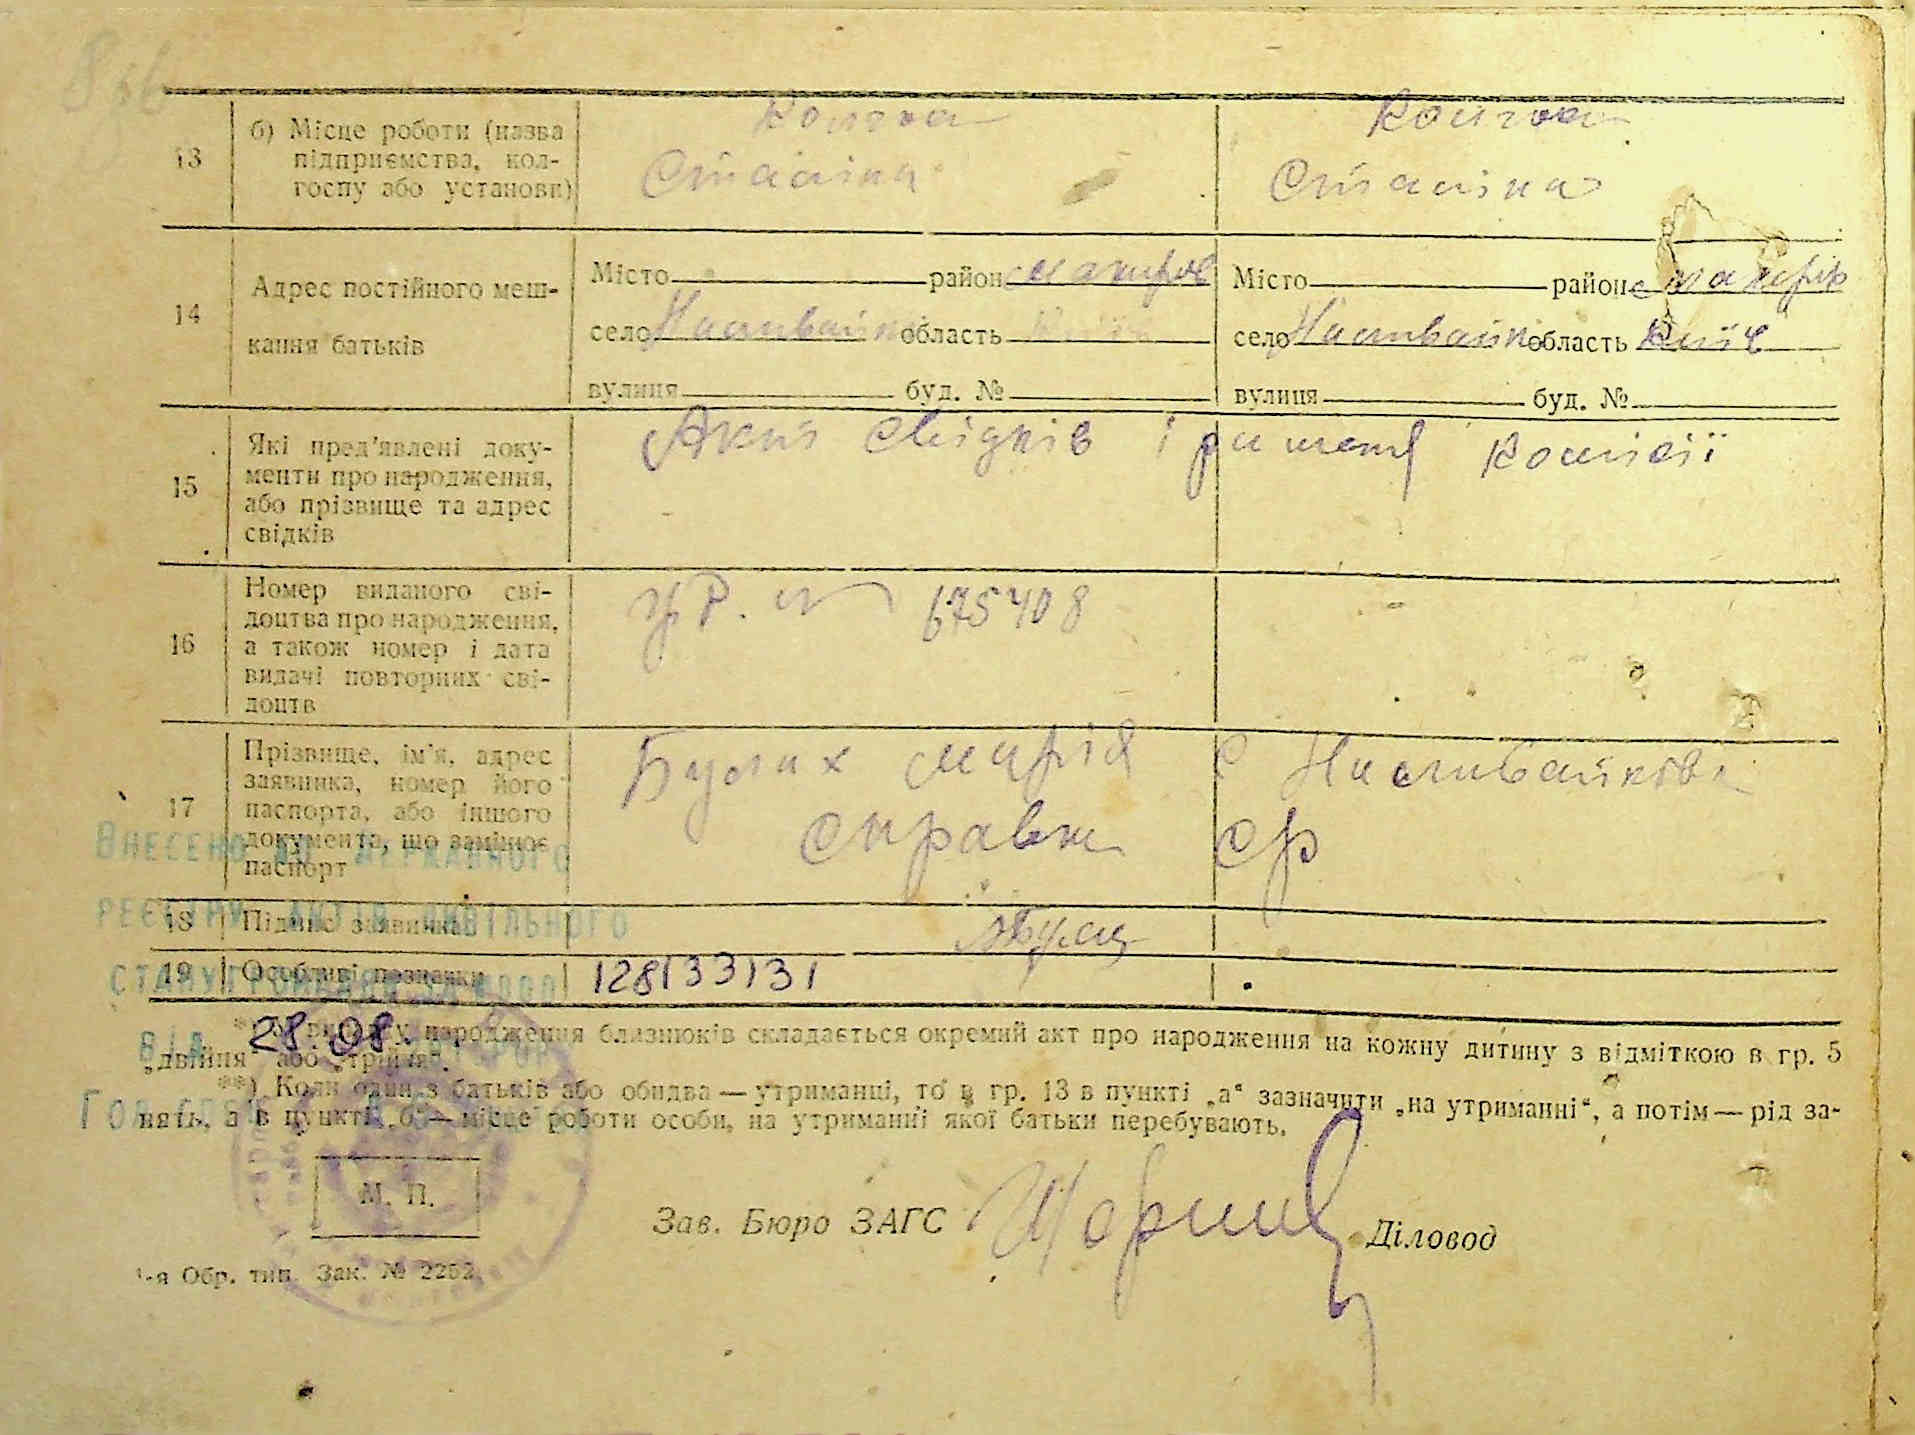 13
б) Місце роботи (назва
підприємства, кол-
госпу або установи)
Колгосп
Сталіна
Колгосп
Сталіна
14
Адрес постійного меш-
кання батьків
Місто район Макарів
село Наливайк область Київ
вулиця буд. №
Місто район Макарів
село Наливайк область Київ
вулиця буд. №
15
Які пред'явлені доку-
менти про народження,
або прізвище та адрес
свідків
Акт свідків і комісії
16
Номер виданого сві-
доцтва про народження,
а також номер і дата
видачі повторних сві-
доцтв
№ 675408
17
Прізвище, ім'я, адрес
заявника, номер його
паспорта, або іншого
документа, що замінює
паспорт
Булах Марія с Наливайківка
справка ср
18 Підпис заявника
19 Особливі познавки 128133131
Внесено до Державного
реєстру актів цивільного
стану громадян за №000
від 28.08.
*) У випадку народження близнюків складається окремий акт про народження на кожну дитину з відміткою в гр. 5
„двійня“ або „трійня“.
**) Коли один з батьків або обидва — утриманці, то в гр. 13 в пункті „а“ зазначити „на утриманні“, а потім — рід за-
нять, а в пункті „б“ — місце роботи особи, на утриманні якої батьки перебувають.
М. П.
Зав. Бюро ЗАГС Діловод
1-я Обр. тип. Зак. № 2252